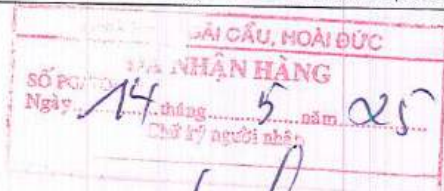 ẢI CẦU, HOÀI ĐỨC
ĐÃ NHẬN HÀNG
SỐ PG/
Ngày 14 tháng 5 năm 25
Chữ ký người nhận